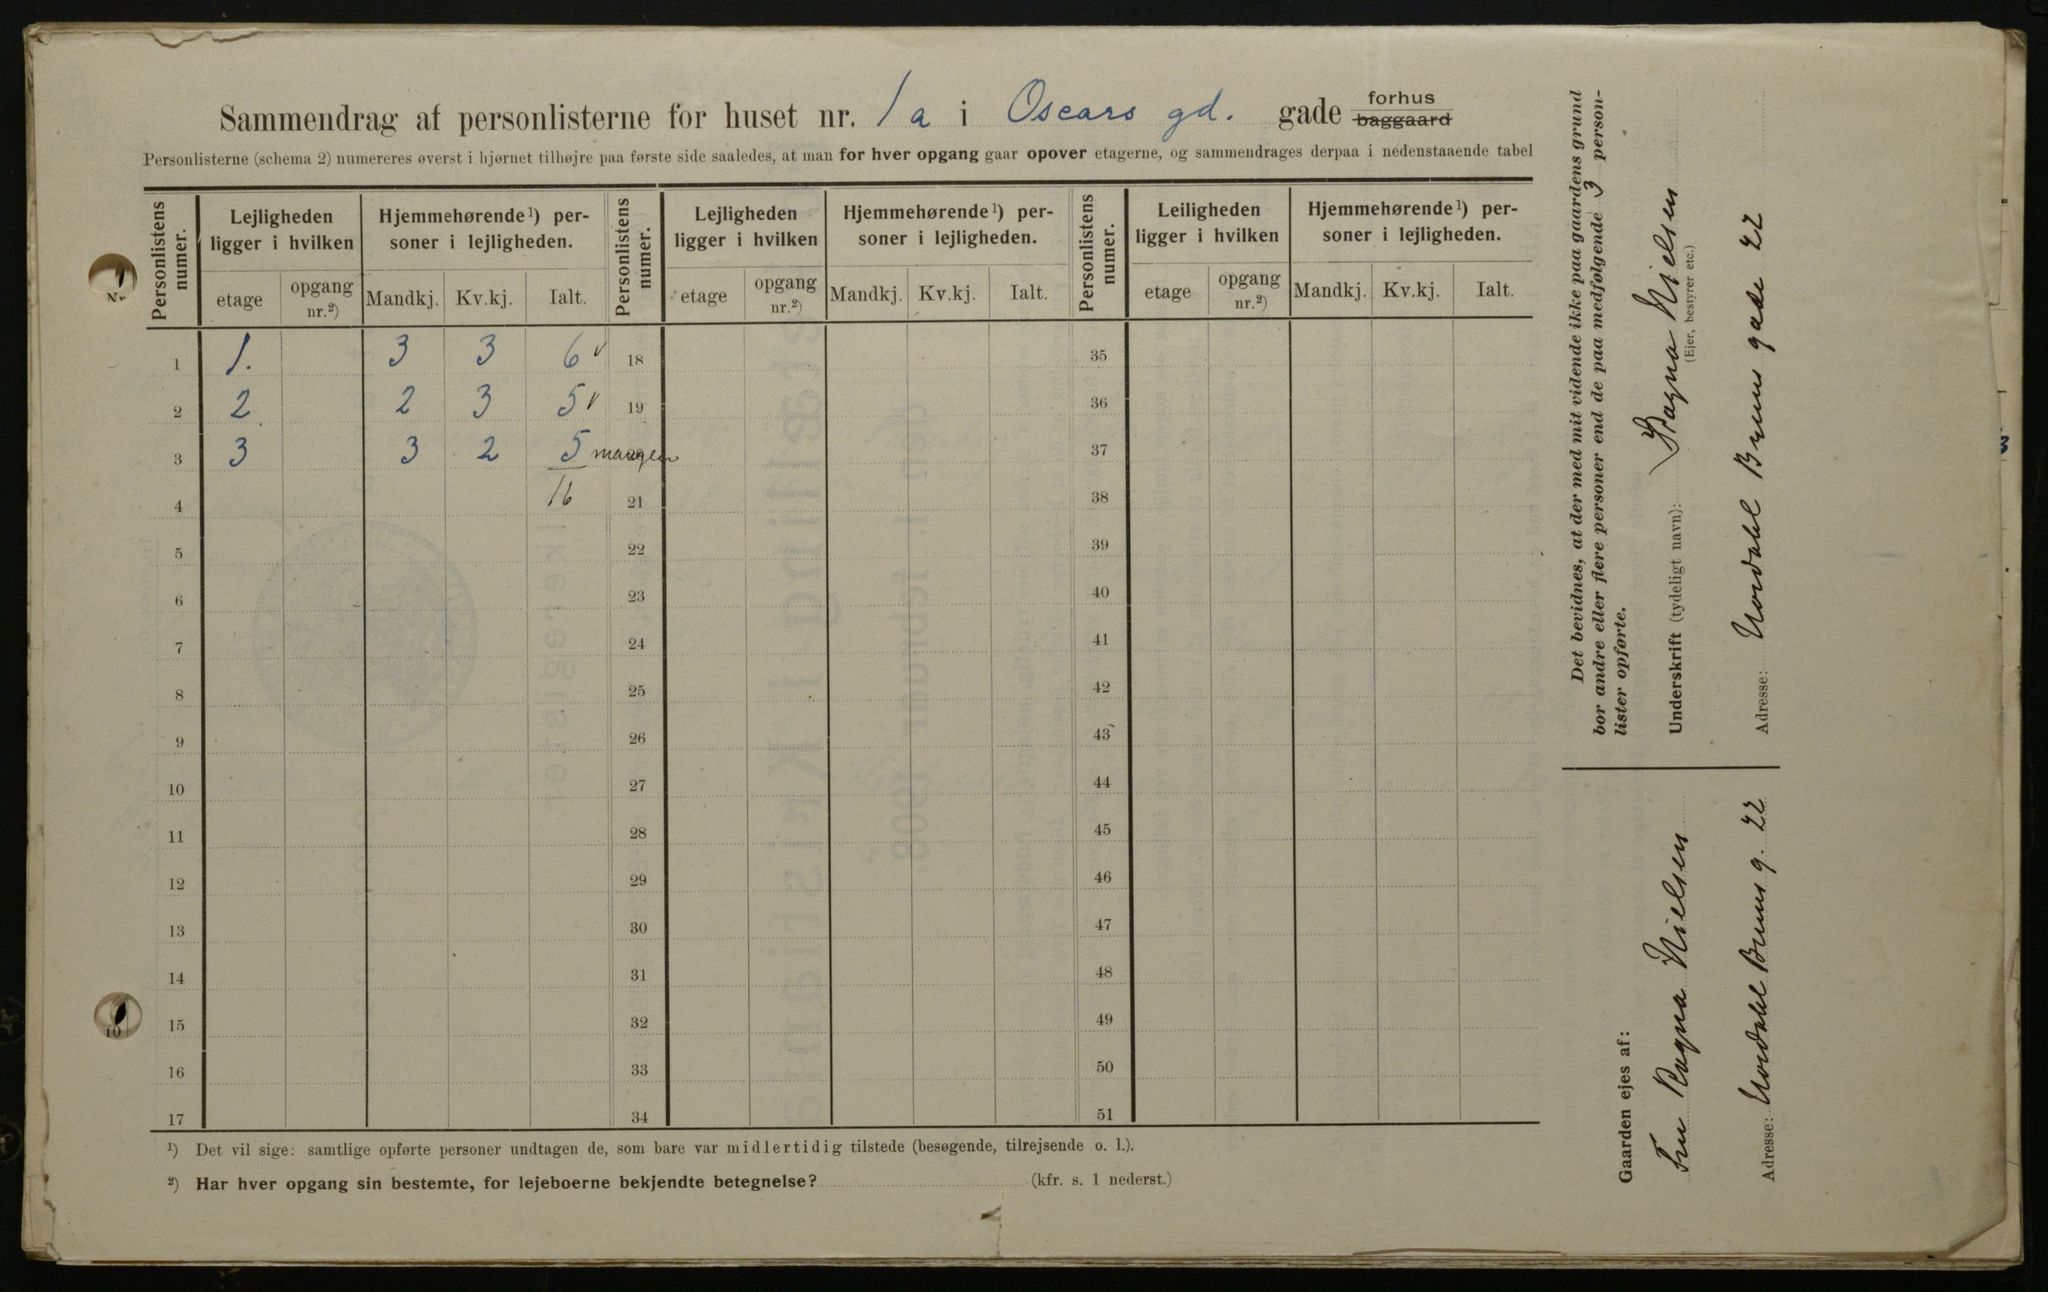 Sammendrag af personlisterne for huset nr. 1a i Oscars gd. gade forhus baggaard
Personlisterne (schema 2) numereres øverst i hjørnet tilhøjre paa første side saaledes, at man for hver opgang gaar opover etagerne, og sammendrages derpaa i nedenstaaende tabel
Personlistens numer. Lejligheden ligger i hvilken Hjemmehørende 1) personer i lejligheden. Personlistens numer. Lejligheden ligger i hvilken Hjemmehørende 1) personer i lejligheden. Personlistens numer. Leiligheden ligger i hvilken Hjemmehørende 1) personer i lejligheden.
etage opgang nr. 2) Mandkj. Kv.kj. Ialt. etage opgang nr. 2) Mandkj. Kv.kj. Ialt. etage opgang nr. 2) Mandkj. Kv.kj. Ialt.
1 1. 3 3 6 v 18 35
2 2 2 3 5 v 19 36
3 3 3 2 5 mangler 37
4 16 21 38
5 22 39
6 23 40
7 24 41
8 25 42
9 26 43
10 27 44
11 28 45
12 29 46
13 30 47
14 31 48
15 32 49
16 33 50
17 34 51
1) Det vil sige: samtlige opførte personer undtagen de, som bare var midlertidig tilstede (besøgende, tilrejsende o. l.).
2) Har hver opgang sin bestemte, for lejeboerne bekjendte betegnelse? (kfr. s. 1 nederst.)
Det bevidnes, at der med mit vidende ikke paa gaardens grund
bor andre eller flere personer end de paa medfølgende 3 person-
lister opførte.
Underskrift (tydeligt navn): Ragna Nielsen
(Ejer, bestyrer etc.)
Adresse: Nordahl Bruns gade 22
Gaarden ejes af:
Fru Ragna Nielsen
Adresse: Nordahl Bruns g. 22